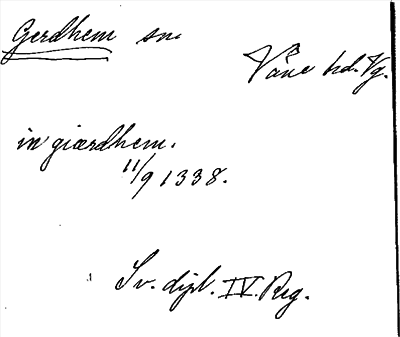 Gerdhem sn.
Våne hd. Vg.
in giærdhem.
11/9 1338.
Sv. dipl. IV. Reg.